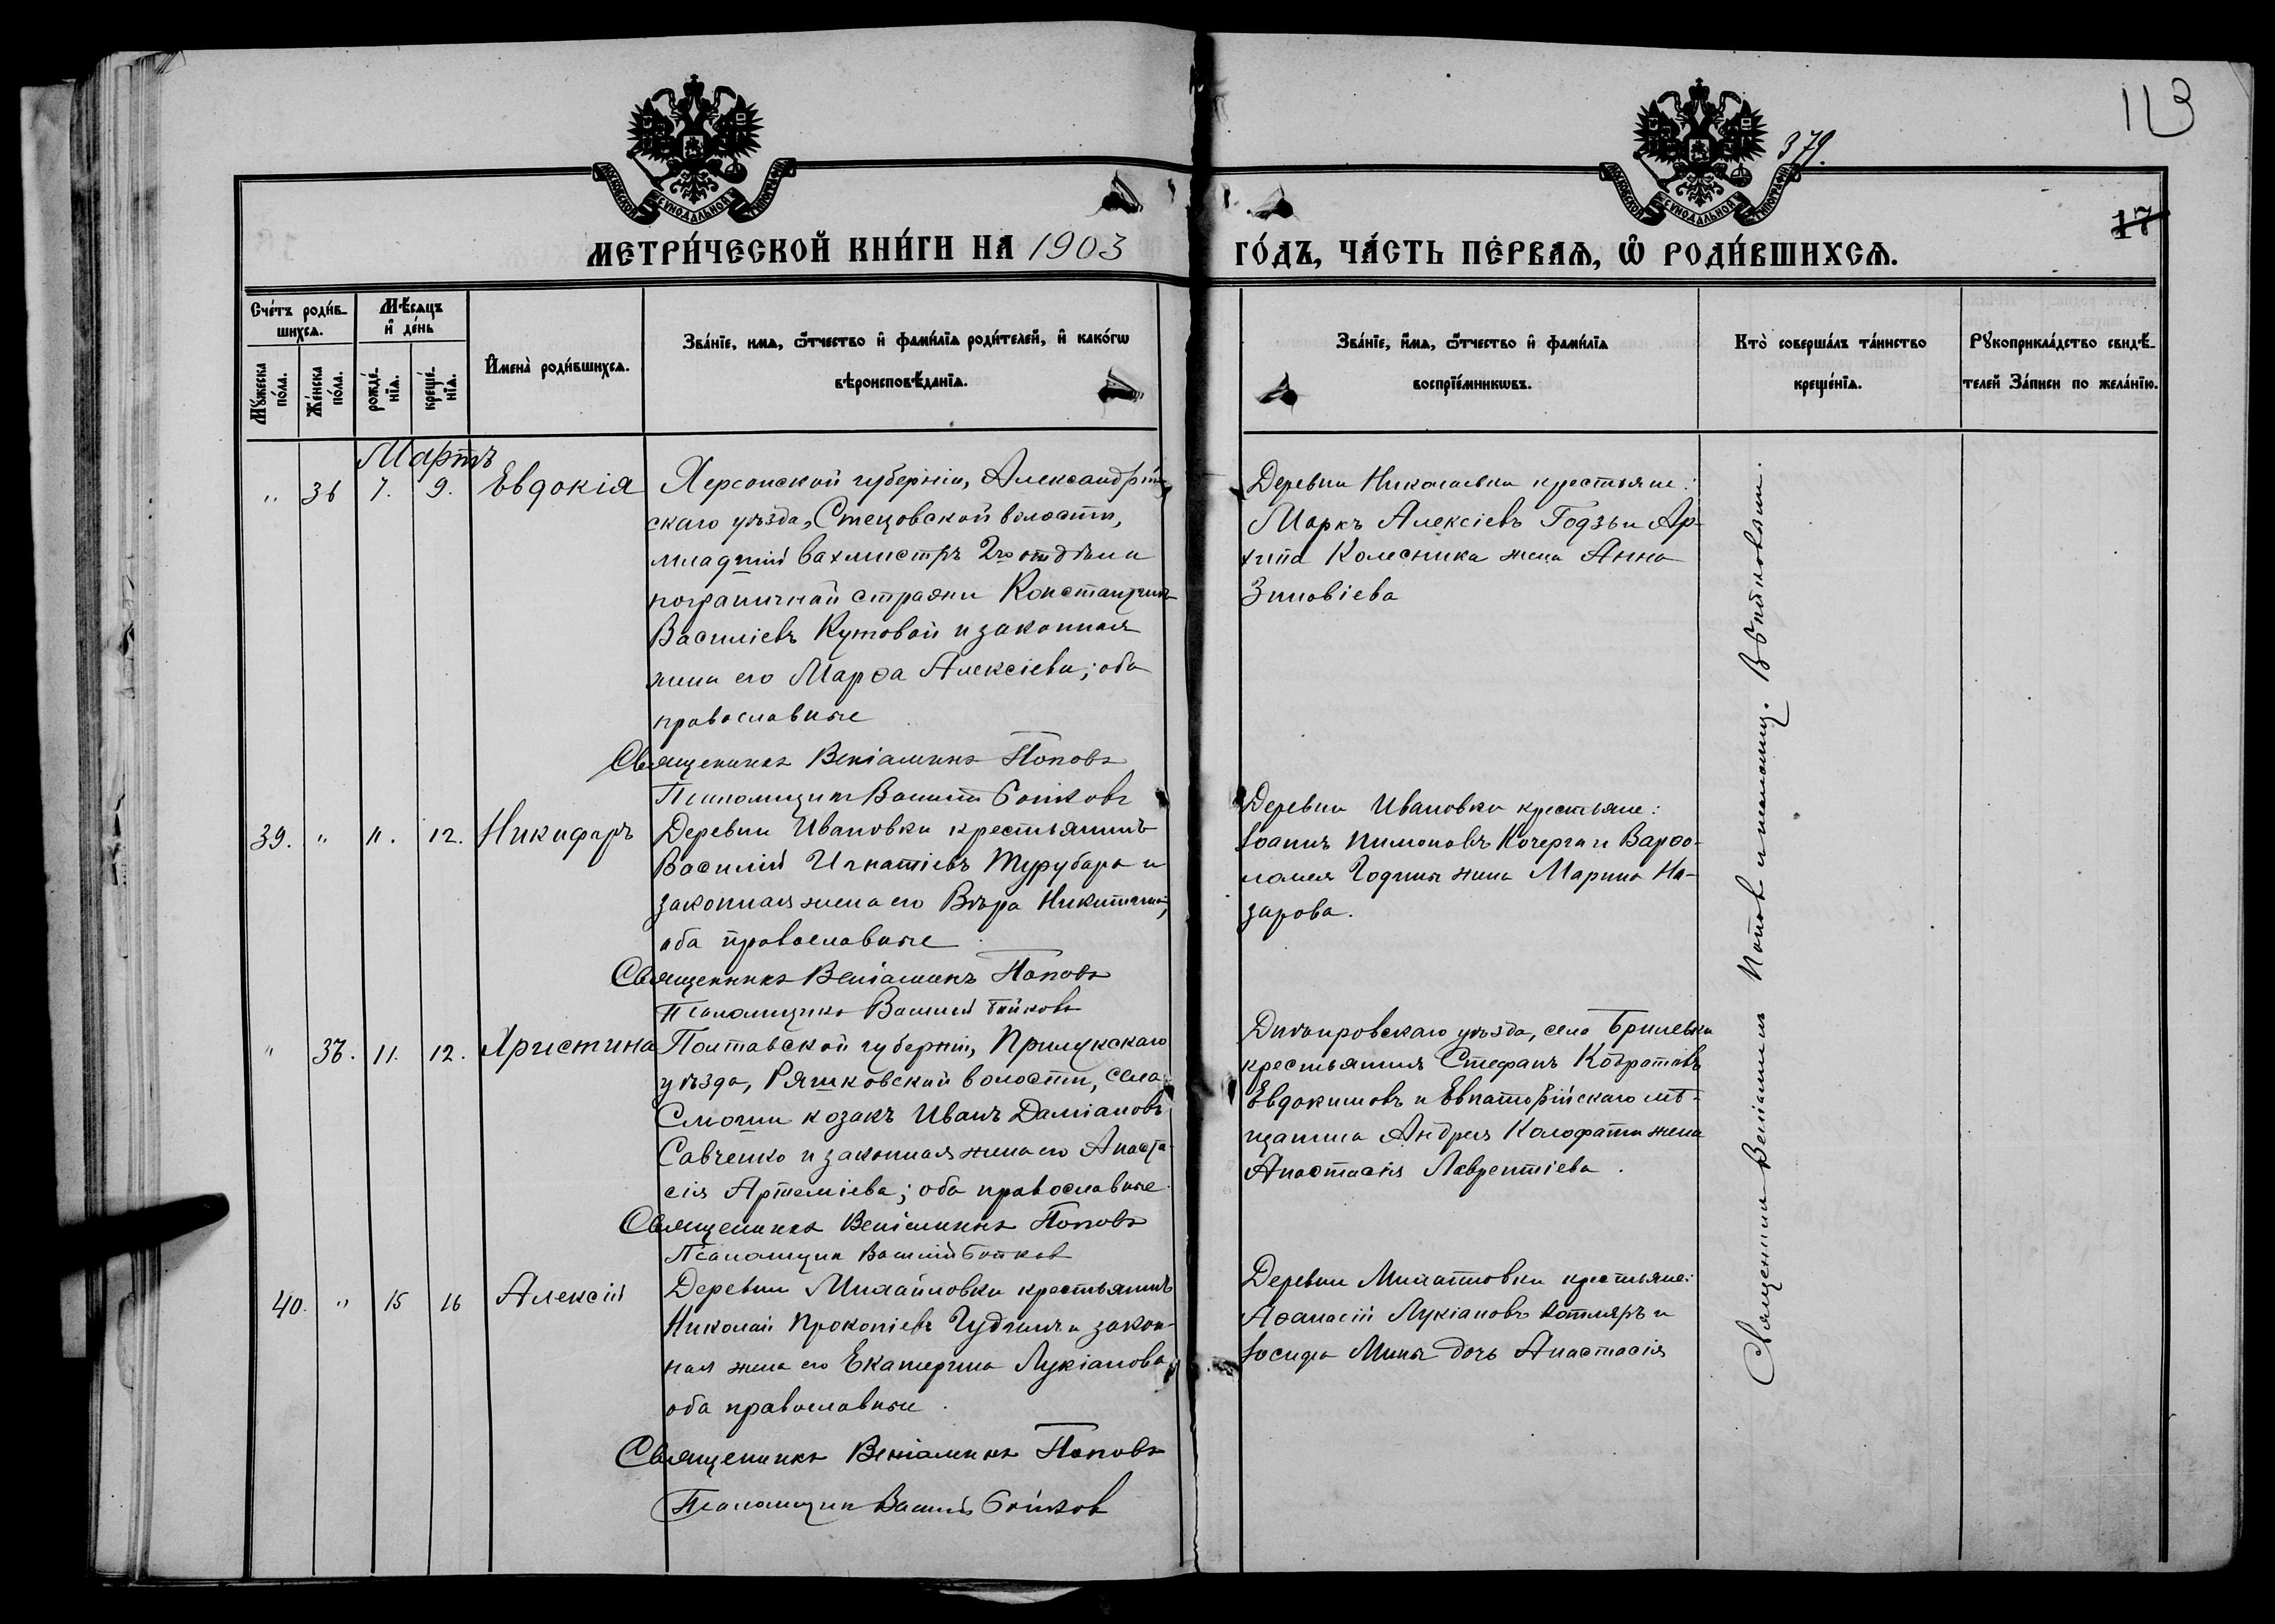 113
379.
17
МОСКОВСКОЙ СѴНОДАЛЬНОЙ ТИПОГРАФІИ
МОСКОВСКОЙ СѴНОДАЛЬНОЙ ТИПОГРАФІИ
МЕТРИ́ЧЕСКОЙ КНИ́ГИ НА 1903 ГО́ДЪ, ЧА́СТЬ ПЕ́РВАѦ, Ѡ҆ РОДИ́ВШИХСѦ.
Сче́тъ роди́вшихсѧ.
Мꙋ́жеска по́ла.
Же́нска по́ла.
Мѣ́сѧцъ и҆ де́нь
рожде́нїѧ.
креще́нїѧ.
И҆мена̀ роди́вшихсѧ.
Зва́нїе, и҆́мѧ, ѻ҆́тчество и҆ фами́лїѧ роди́телей, и҆ како́гѡ
вѣроисповѣ́данїѧ.
Зва́нїе, и҆́мѧ, ѻ҆́тчество и҆ фами́лїѧ
воспрїе́мникѡвъ.
Кто̀ соверша́лъ та́инство
креще́нїѧ.
Рꙋкоприкла́дство свидѣ́-
телей За́писи по жела́нїю.
Мартъ
" 36 7. 9. Евдокія
Херсонской губерніи, Александрій-
скаго уѣзда, Стецовской волости,
младшій вахмистръ 2го отдѣла
пограничной стражи Константинъ
Василіевъ Кутовой и законная
жена его Марѳа Алексіева; оба
православные
Священникъ Веніаминъ Поповъ
Псаломщикъ Василій Бойковъ
Деревни Николаевки крестьяне:
Маркъ Алексіевъ Годзь и Ар-
хипа Колесника жена Анна
Зиновіева
39. " 11. 12. Никифоръ
Деревни Ивановки крестьянинъ
Василій Игнатіевъ Турубара и
законная жена его Вѣра Никитина;
оба православные
Священникъ Веніаминъ Поповъ
Псаломщикъ Василій Бойковъ
Деревни Ивановки крестьяне:
Іоаннъ Пимоновъ Кочерга и Варѳо-
ломея Годины жена Марина На-
зарова.
" 37. 11. 12. Христина
Полтавской губерніи, Прилукскаго
уѣзда, Ряшковской волости, села
Смоши козакъ Иванъ Даміановъ
Савченко и законная жена его Анаста-
сія Артеміева; оба православные
Священникъ Веніаминъ Поповъ
Псаломщикъ Василій Бойковъ
Днѣпровскаго уѣзда, села Брилевки
крестьянинъ Стефанъ Кодратовъ
Евдокимовъ и Евпаторійскаго мѣ-
щанина Андрея Калафати жена
Анастасія Лаврентіева.
40. " 15 16 Алексій
Деревни Михайловки крестьянинъ
Николай Прокопіевъ Гудимъ и закон-
ная жена его Екатерина Лукіанова,
оба православные.
Священникъ Веніаминъ Поповъ
Псаломщикъ Василій Бойков
Деревни Михайловки крестьяне:
Аѳанасій Лукіановъ Котляръ и
Іосифа Мины дочь Анастасія
Священникъ Веніаминъ Поповъ и псаломщ. В. Бойковымъ.